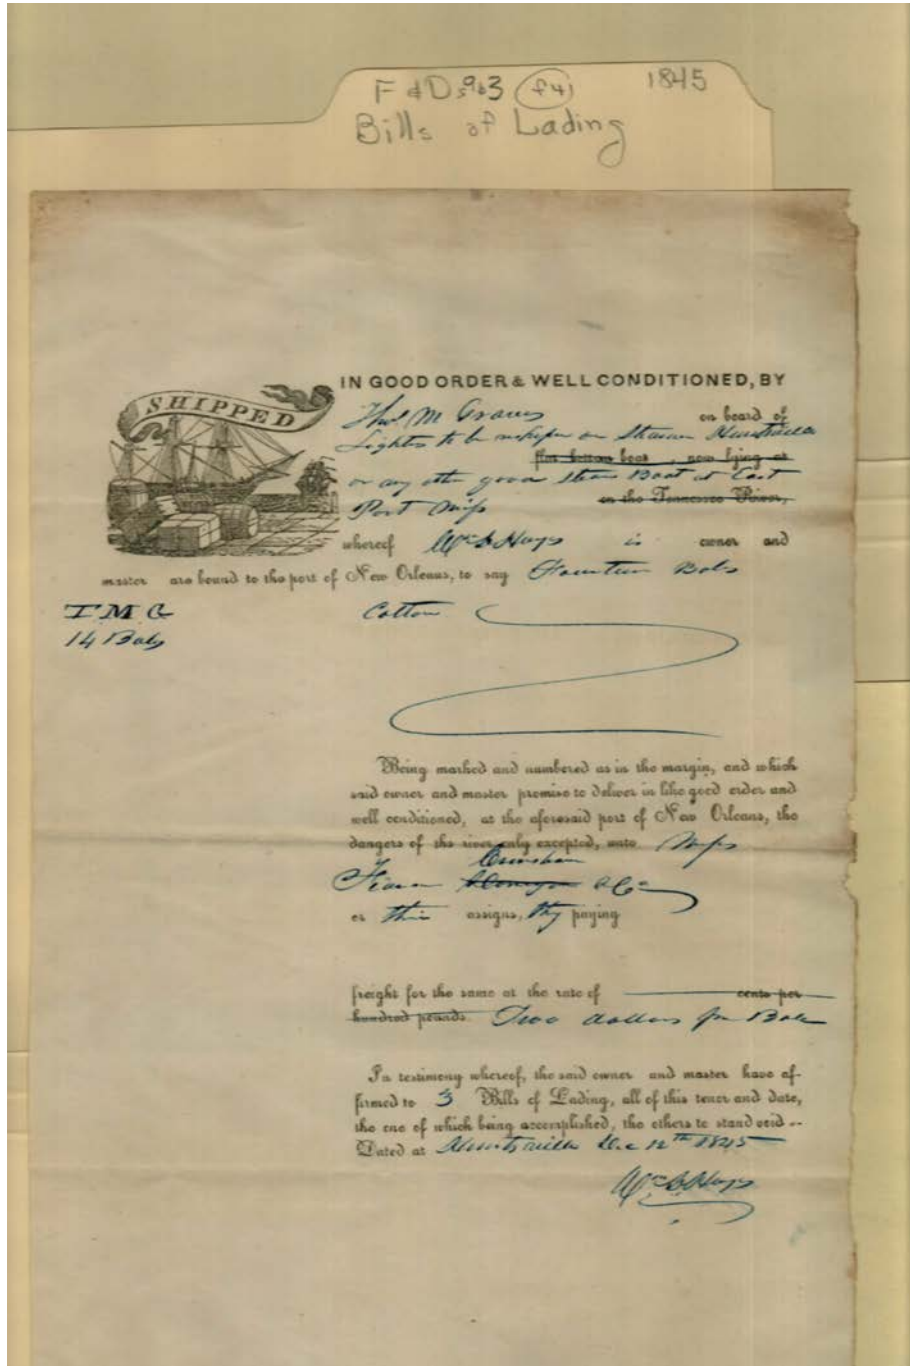 F & D 963 (f4) 1845
Bills of Lading
SHIPPED
IN GOOD ORDER & WELL CONDITIONED, BY
Thos M on board of
Lighter to be on Steamer Huntsville
flat bottom boat, now lying at
or any other good Steam Boat at East
Port Miss on the Tennessee River,
whereof Wm Hays is owner and
master are bound to the port of New Orleans, to say Fourteen Bales
T M G Cotton
14 Bales
Being marked and numbered as in the margin, and which
said owner and master promise to deliver in like good order and
well conditioned, at the aforesaid port of New Orleans, the
dangers of the river only excepted, unto Mess
& Co
or assigns, they paying
freight for the same at the rate of cents per
hundred pounds. Two dollars per Bale
In testimony whereof, the said owner and master have af-
firmed to 3 Bills of Lading, all of this tenor and date,
the one of which being accomplished, the others to stand void --
Dated at Huntsville Dec 12th 1845
Wm Hays